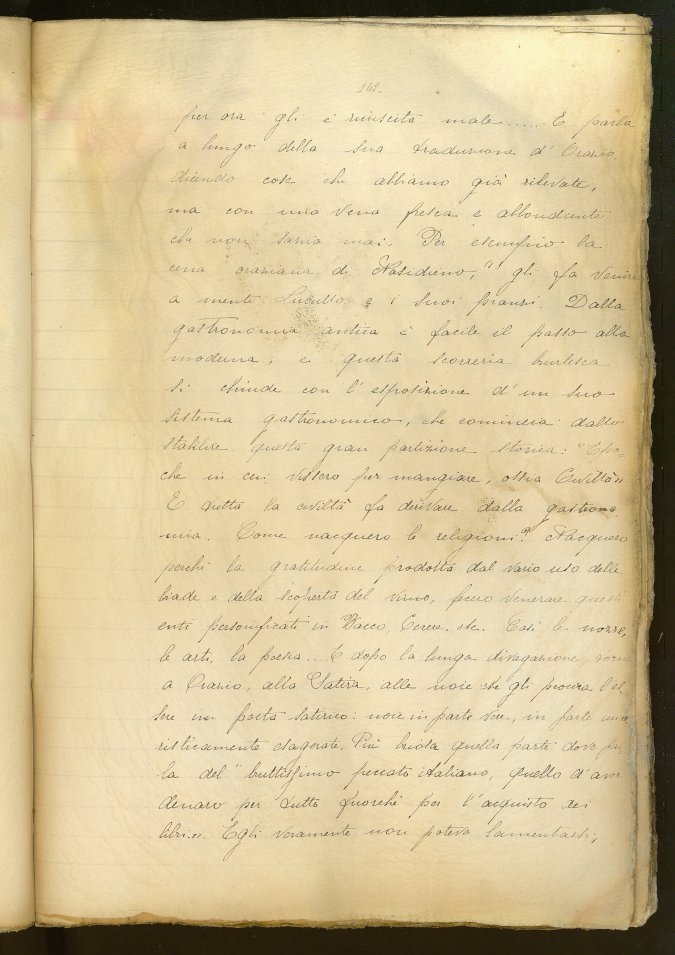 142
per ora gli è riuscita male..... E parla
a lungo della sua traduzione d' Orazio
dicendo cose che abbiamo già rilevate,
ma con una vena fresca e abbondante
che non sazia mai. Per esempio la
cena oraziana di Nasidieno, gli fa venire
a mente Lucullo e i suoi pranzi. Dalla
gastronomia antica è facile il passo alla
moderna; e questa scorreria burlesca
si chiude con l' esposizione d' un suo
sistema gastronomico, che comincia dallo
stabilire questa gran partizione storica: "Epo-
che in cui vissero per mangiare, ossia Civiltà"
E tutta la civiltà fa derivare dalla gastrono
mia. Come nacquero le religioni? Nacquero
perché la gratitudine prodotta dal vario uso delle
biade e della scoperta del vino, fecero venerare questi
enti personificati in Bacco, Cerere, etc. Così le nozze,
le arti, la poesia... E dopo la lunga divagazione, torna
a Orazio, alla Satira, alle noie che gli procura l'es-
sere un poeta satirico: noie in parte vere, in parte umo
risticamente esagerate. Più briosa quella parte dove par
la del "bruttissimo peccato italiano, quello d' aver
denaro per tutto fuorché per l' acquisto dei
libri". Egli veramente non poteva lamentarsi;